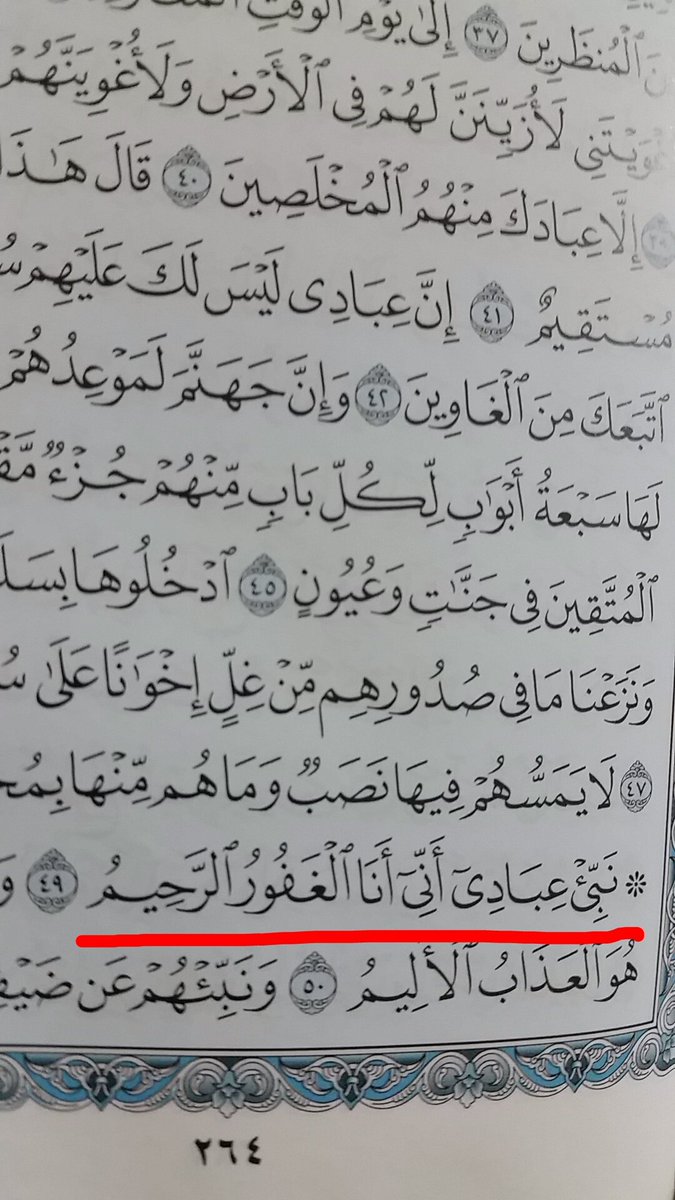 نَ ٱلْمُنظَرِينَ ٣٧ إِلَىٰ يَوْمِ ٱلْوَقْتِ
لَأُزَيِّنَنَّ لَهُمْ فِى ٱلْأَرْضِ وَلَأُغْوِيَنَّهُمْ
إِلَّا عِبَادَكَ مِنْهُمُ ٱلْمُخْلَصِينَ ٤٠ قَالَ هَـٰذَا
مُسْتَقِيمٌ ٤١ إِنَّ عِبَادِى لَيْسَ لَكَ عَلَيْهِمْ سُ
ٱتَّبَعَكَ مِنَ ٱلْغَاوِينَ ٤٢ وَإِنَّ جَهَنَّمَ لَمَوْعِدُهُمْ
لَهَا سَبْعَةُ أَبْوَٰبٍ لِّكُلِّ بَابٍ مِّنْهُمْ جُزْءٌ مَّقْ
ٱلْمُتَّقِينَ فِى جَنَّـٰتٍ وَعُيُونٍ ٤٥ ٱدْخُلُوهَا بِسَلَ
وَنَزَعْنَا مَا فِى صُدُورِهِم مِّنْ غِلٍّ إِخْوَٰنًا عَلَىٰ سُ
٤٧ لَا يَمَسُّهُمْ فِيهَا نَصَبٌ وَمَا هُم مِّنْهَا بِمُخْ
۞ نَبِّئْ عِبَادِىٓ أَنِّىٓ أَنَا ٱلْغَفُورُ ٱلرَّحِيمُ ٤٩ وَ
هُوَ ٱلْعَذَابُ ٱلْأَلِيمُ ٥٠ وَنَبِّئْهُمْ عَن ضَيْفِ
٢٦٤